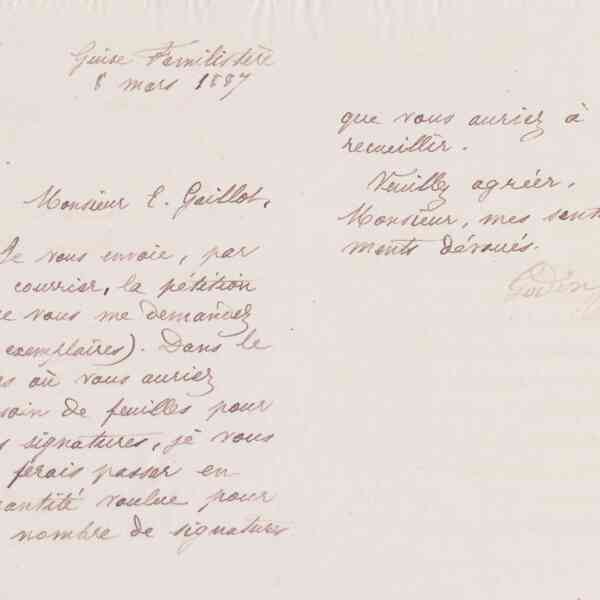 Guise Familistère
8 mars 1887
Monsieur E. Gaillot,
Je vous envoie, par
courrier, la pétition
ue vous me demandez
exemplaires). Dans le
as où vous auriez
soin de feuilles pour
s signatures, je vous
ferais passer en
uantité voulue pour
nombre de signatures
que vous auriez à
recueillir.
Veuillez agréer,
Monsieur, mes senti
ments dévoués.
Godin